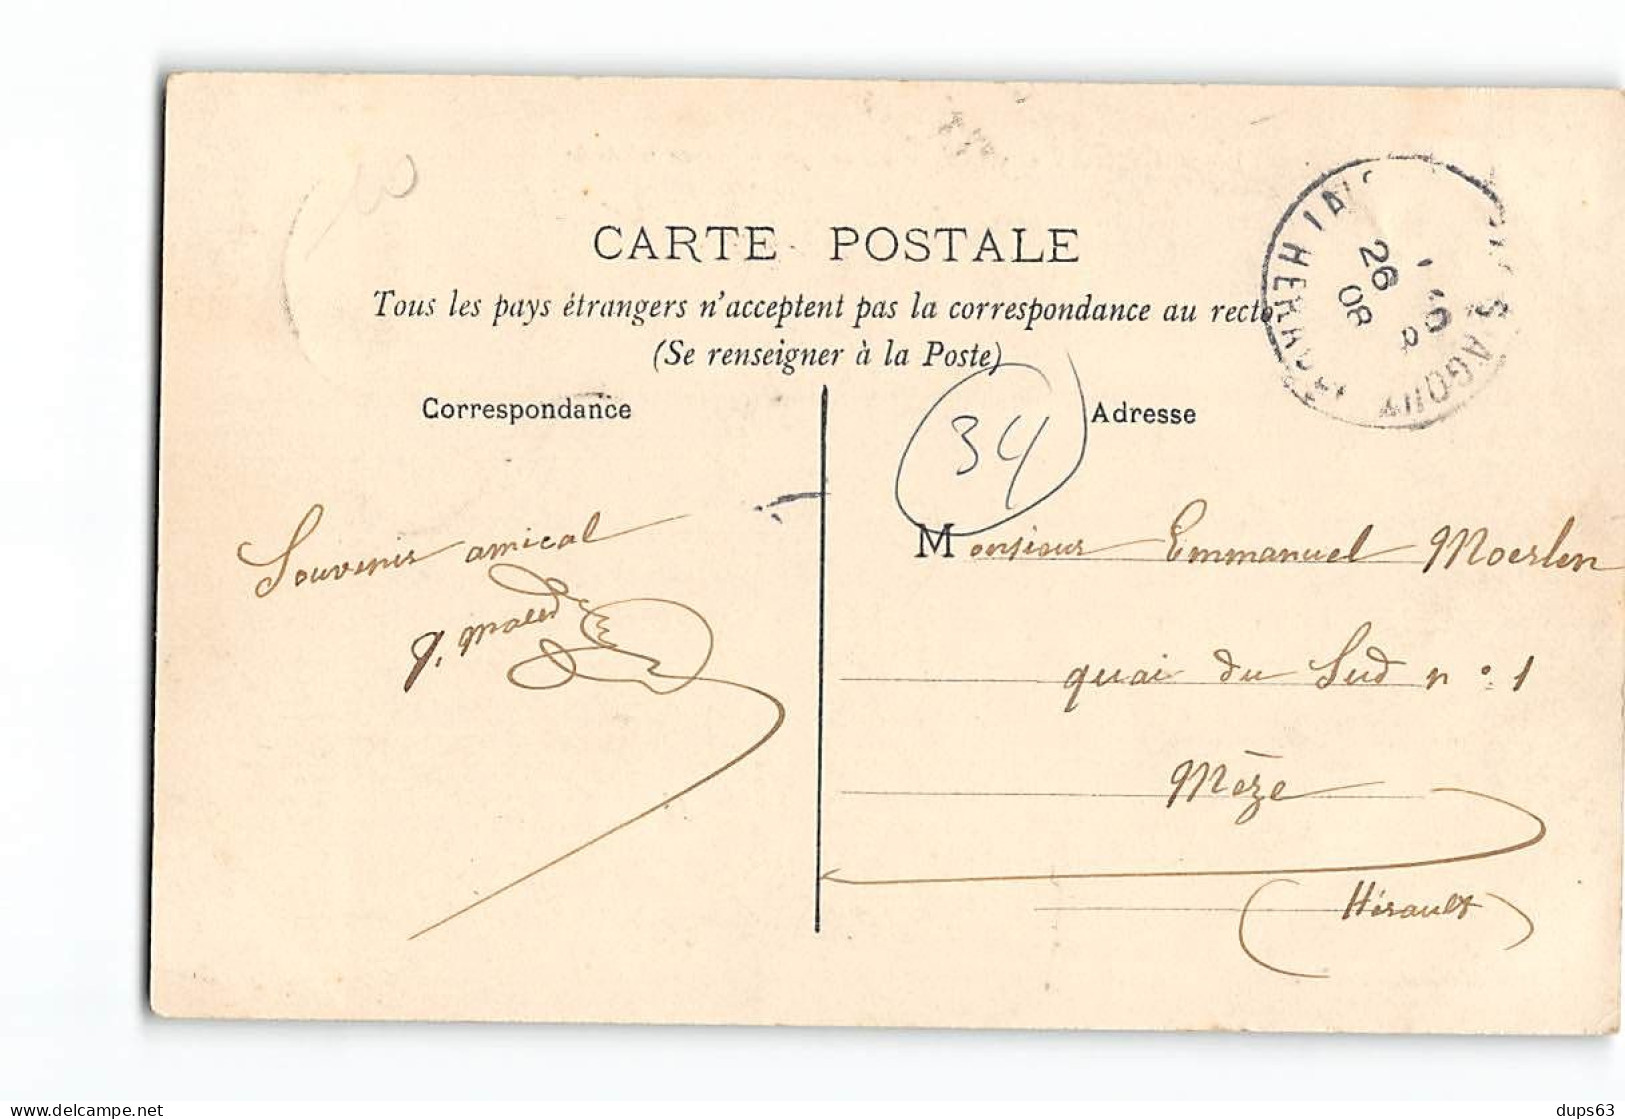 CARTE POSTALE
Tous les pays étrangers n'acceptent pas la correspondance au recto
(Se renseigner à la Poste)
Correspondance
Adresse
34
26
08
Souvenir amical
Monsieur Emmanuel Moerlen
quai du Sud n° 1
Mèze
(Hérault)
delcampe.net
dups63